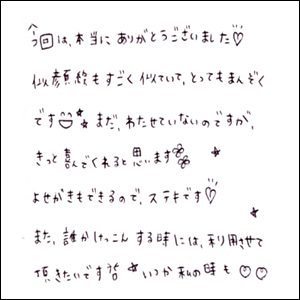 今回は、本当にありがとうございました♡
似顔絵もすごく似ていて、とってもまんぞく
です☺★ まだ、わたせていないのですが、
きっと喜んでくれると思います
よせがきもできるので、ステキです♡
また、誰かけっこんする時には、利用させて
頂きたいです★ いつか私の時も♡♡